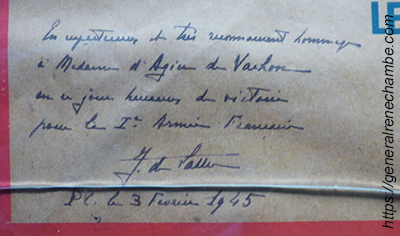 LE
En respectueux et très reconnaissant hommage
à Madame d'Agier de
en ce jour heureux de victoire
pour la Ire Armée Française
J. de
P.C. le 3 Février 1945
https://generalrenechambe.com/